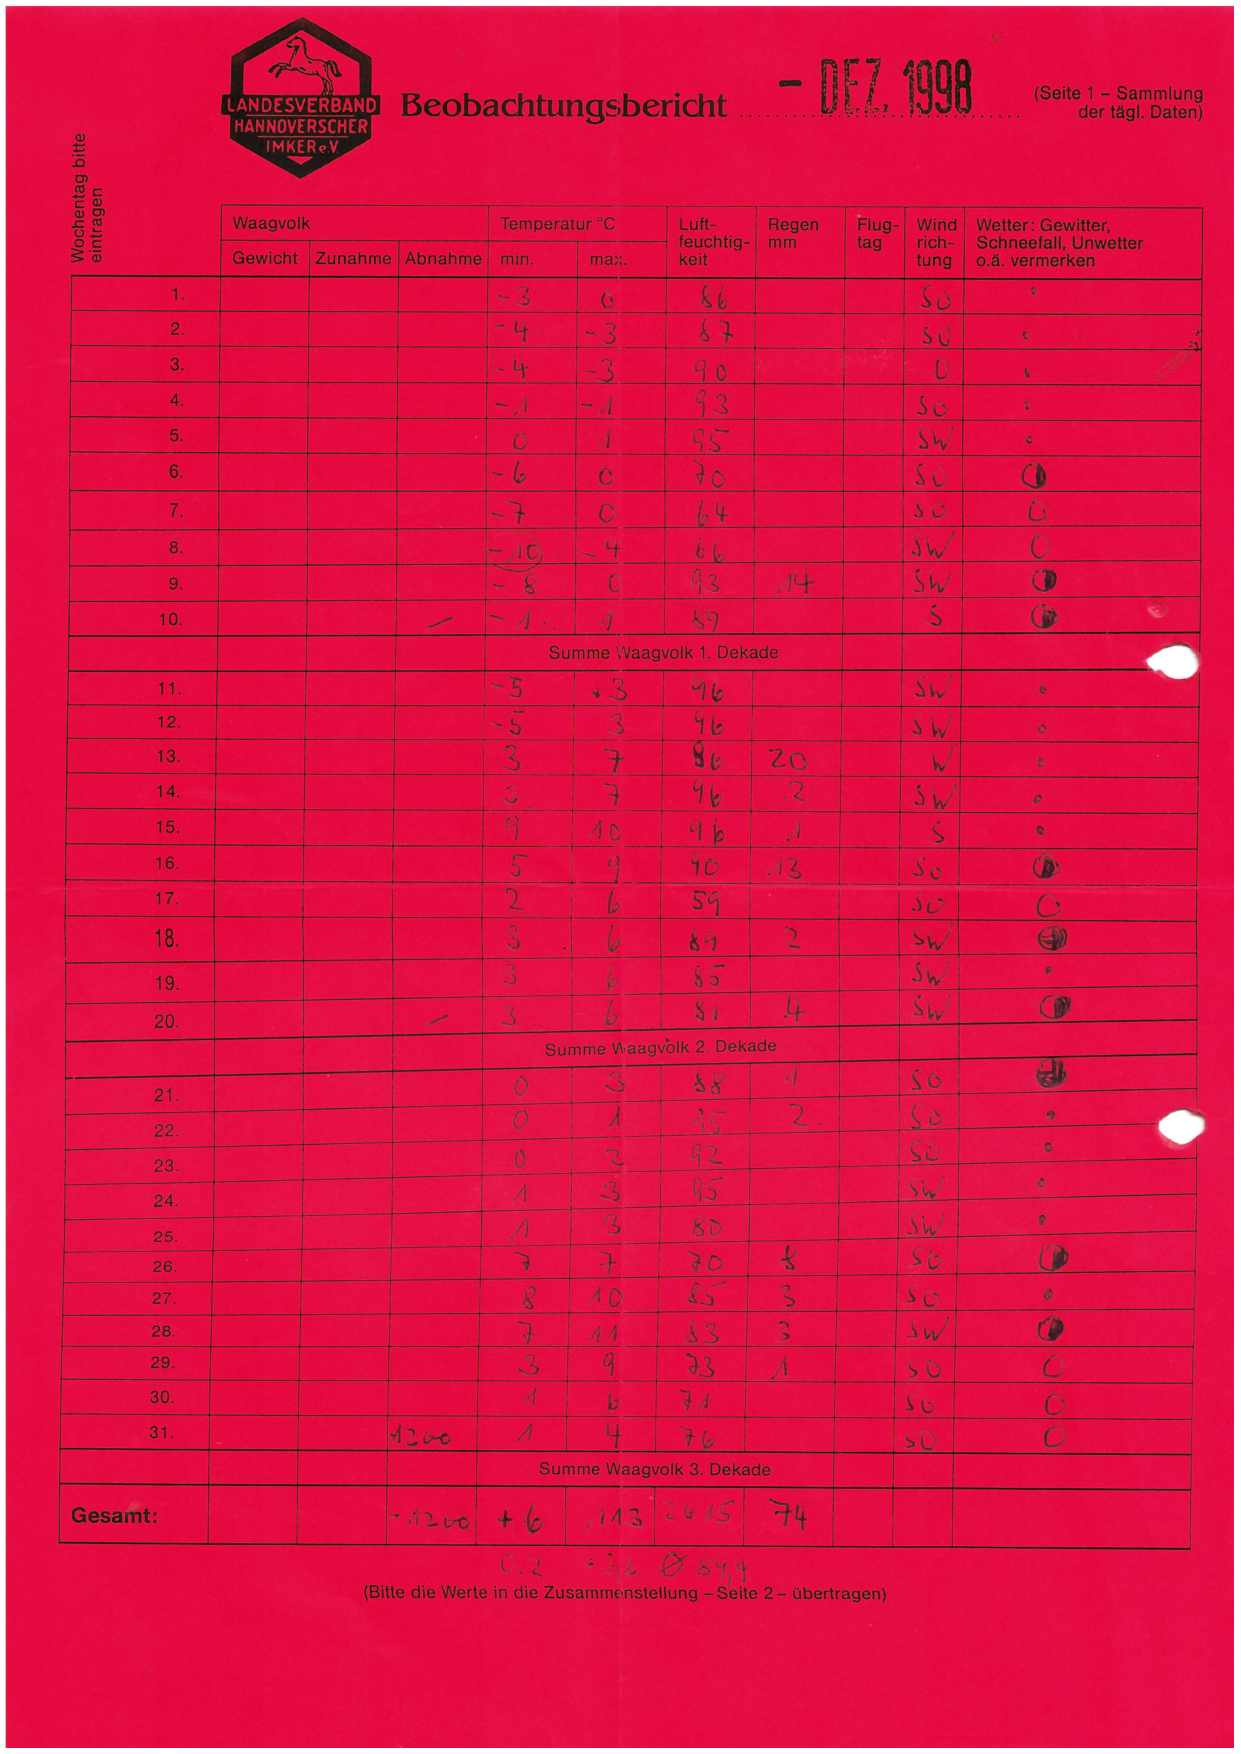 LANDESVERBAND
HANNOVERSCHER
IMKER e.V.
Beobachtungsbericht - DEZ. 1998
(Seite 1 – Sammlung
der tägl. Daten)
Wochentag bitte
eintragen
Waagvolk Temperatur °C Luft-feuchtig-keit Regen mm Flug-tag Wind rich-tung Wetter: Gewitter, Schneefall, Unwetter o.ä. vermerken
Gewicht Zunahme Abnahme min. max.
1. -3 0 86 SO
2. -4 -3 87 SO
3. -4 -3 90 O
4. -1 -1 93 SO
5. 0 1 95 SW
6. -6 0 70 SO
7. -7 0 64 SO
8. -10 -4 66 SW
9. -8 0 93 14 SW
10. – -1 1 89 S
Summe Waagvolk 1. Dekade
11. -5 +3 96 SW
12. -5 3 96 SW
13. 3 7 86 20 W
14. 7 96 2 SW
15. 9 10 96 1 S
16. 5 9 90 13 SO
17. 2 6 59 SO
18. 3 6 89 2 SW
19. 3 6 85 SW
20. – 3 6 81 4 SW
Summe Waagvolk 2. Dekade
21. 0 3 88 1 SO
22. 0 1 95 2 SO
23. 0 2 92 SO
24. 1 3 95 SW
25. 1 3 80 SW
26. 7 7 70 8 SO
27. 8 10 85 3 SO
28. 7 11 83 3 SW
29. 3 9 73 1 SO
30. 1 6 71 SO
31. 1200 1 4 76 SO
Summe Waagvolk 3. Dekade
Gesamt: -1200 +6 113 2615 74
0.2 Ø 84,4
(Bitte die Werte in die Zusammenstellung – Seite 2 – übertragen)